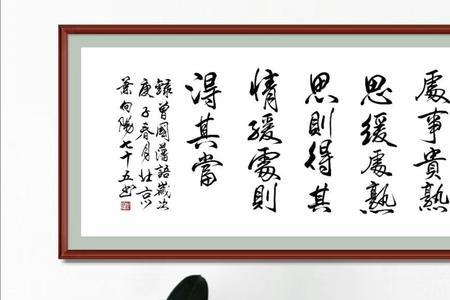 處事貴熟
思緩處熟
思則得其
情緩處則
得其當
錄曾國藩語歲次
庚子春月於京
葉向陽七十五書